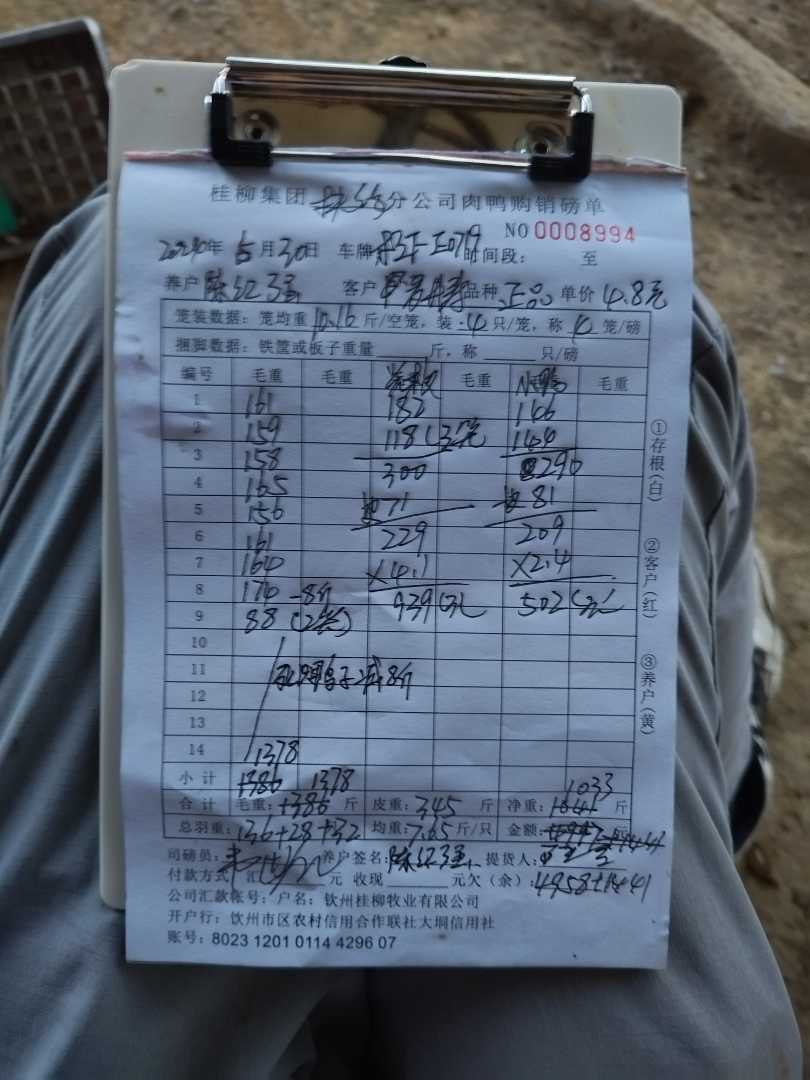 桂柳集团 分公司肉鸭购销磅单
NO 0008994
2024年5月30日 车牌 时间段： 至
养户 陈红 客户 品种 正品 单价 4.8元
笼装数据：笼均重10.16斤/空笼，装4只/笼，称4笼/磅
捆脚数据：铁筐或板子重量 斤，称 只/磅
编号 毛重 毛重 毛重 毛重
1 161 182 146
2 159 118(3笼) 144
3 158 300 290
4 165
5 156 71 81
6 161 229 209
7 160 ×4.1 ×2.4
8 170 -8斤 939(元) 502(元)
9 88 (2笼)
10
11 减8斤
12
13
14 1378
小计 1386 1378 1033
合计 毛重：1386斤 皮重：345斤 净重：1041斤
总羽重：136+28+32 均重：7.65斤/只 金额： 元
司磅员： 养户签名：陈红 提货人：
付款方式：汇 元 收现 元欠（余）：4958+1441
公司汇款帐号：户名：钦州桂柳牧业有限公司
开户行：钦州市区农村信用合作联社大垌信用社
账号：8023 1201 0114 4296 07
①存根（白）
②客户（红）
③养户（黄）